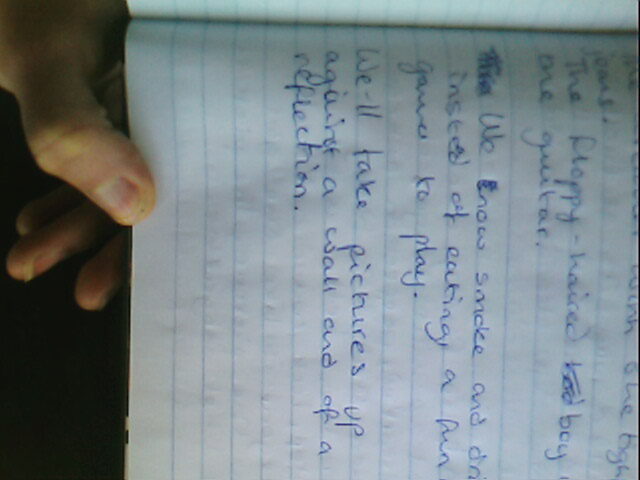 one tigh
jeans.
The floppy-haired boy
one guitar.
We know smoke and dri
insted of eating, a fun
game to play.
We'll take pictures up
against a wall and of a
reflection.